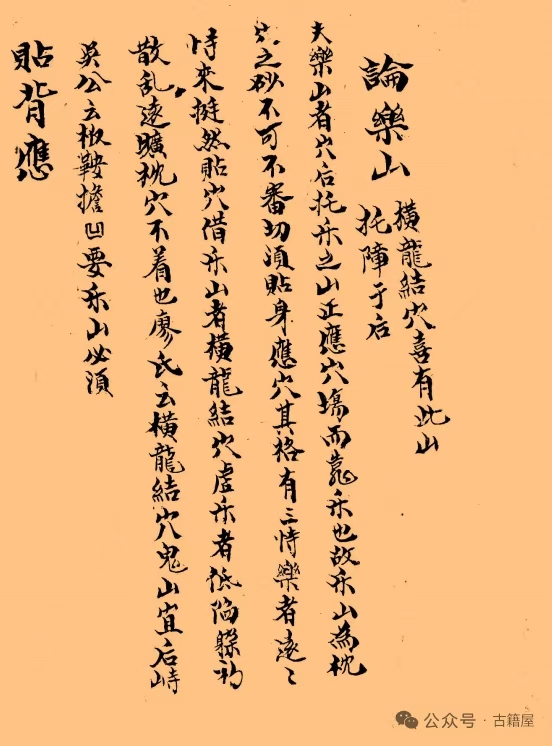 論樂山
橫龍結穴喜有此山
托障于后
夫樂山者穴后托乐之山正應穴塲而靠乐也故乐山為枕
之砂不可不審切湏貼身應穴其格有三恃樂者遠〻
恃来挺然貼穴借乐山者橫龍結穴虛乐者低陷躲
散乱遠曠枕穴不着也廖氏云橫龍結穴鬼山宜后峙
吳公云鞍擔凹要乐山必湏
貼背應
公众号·古籍屋